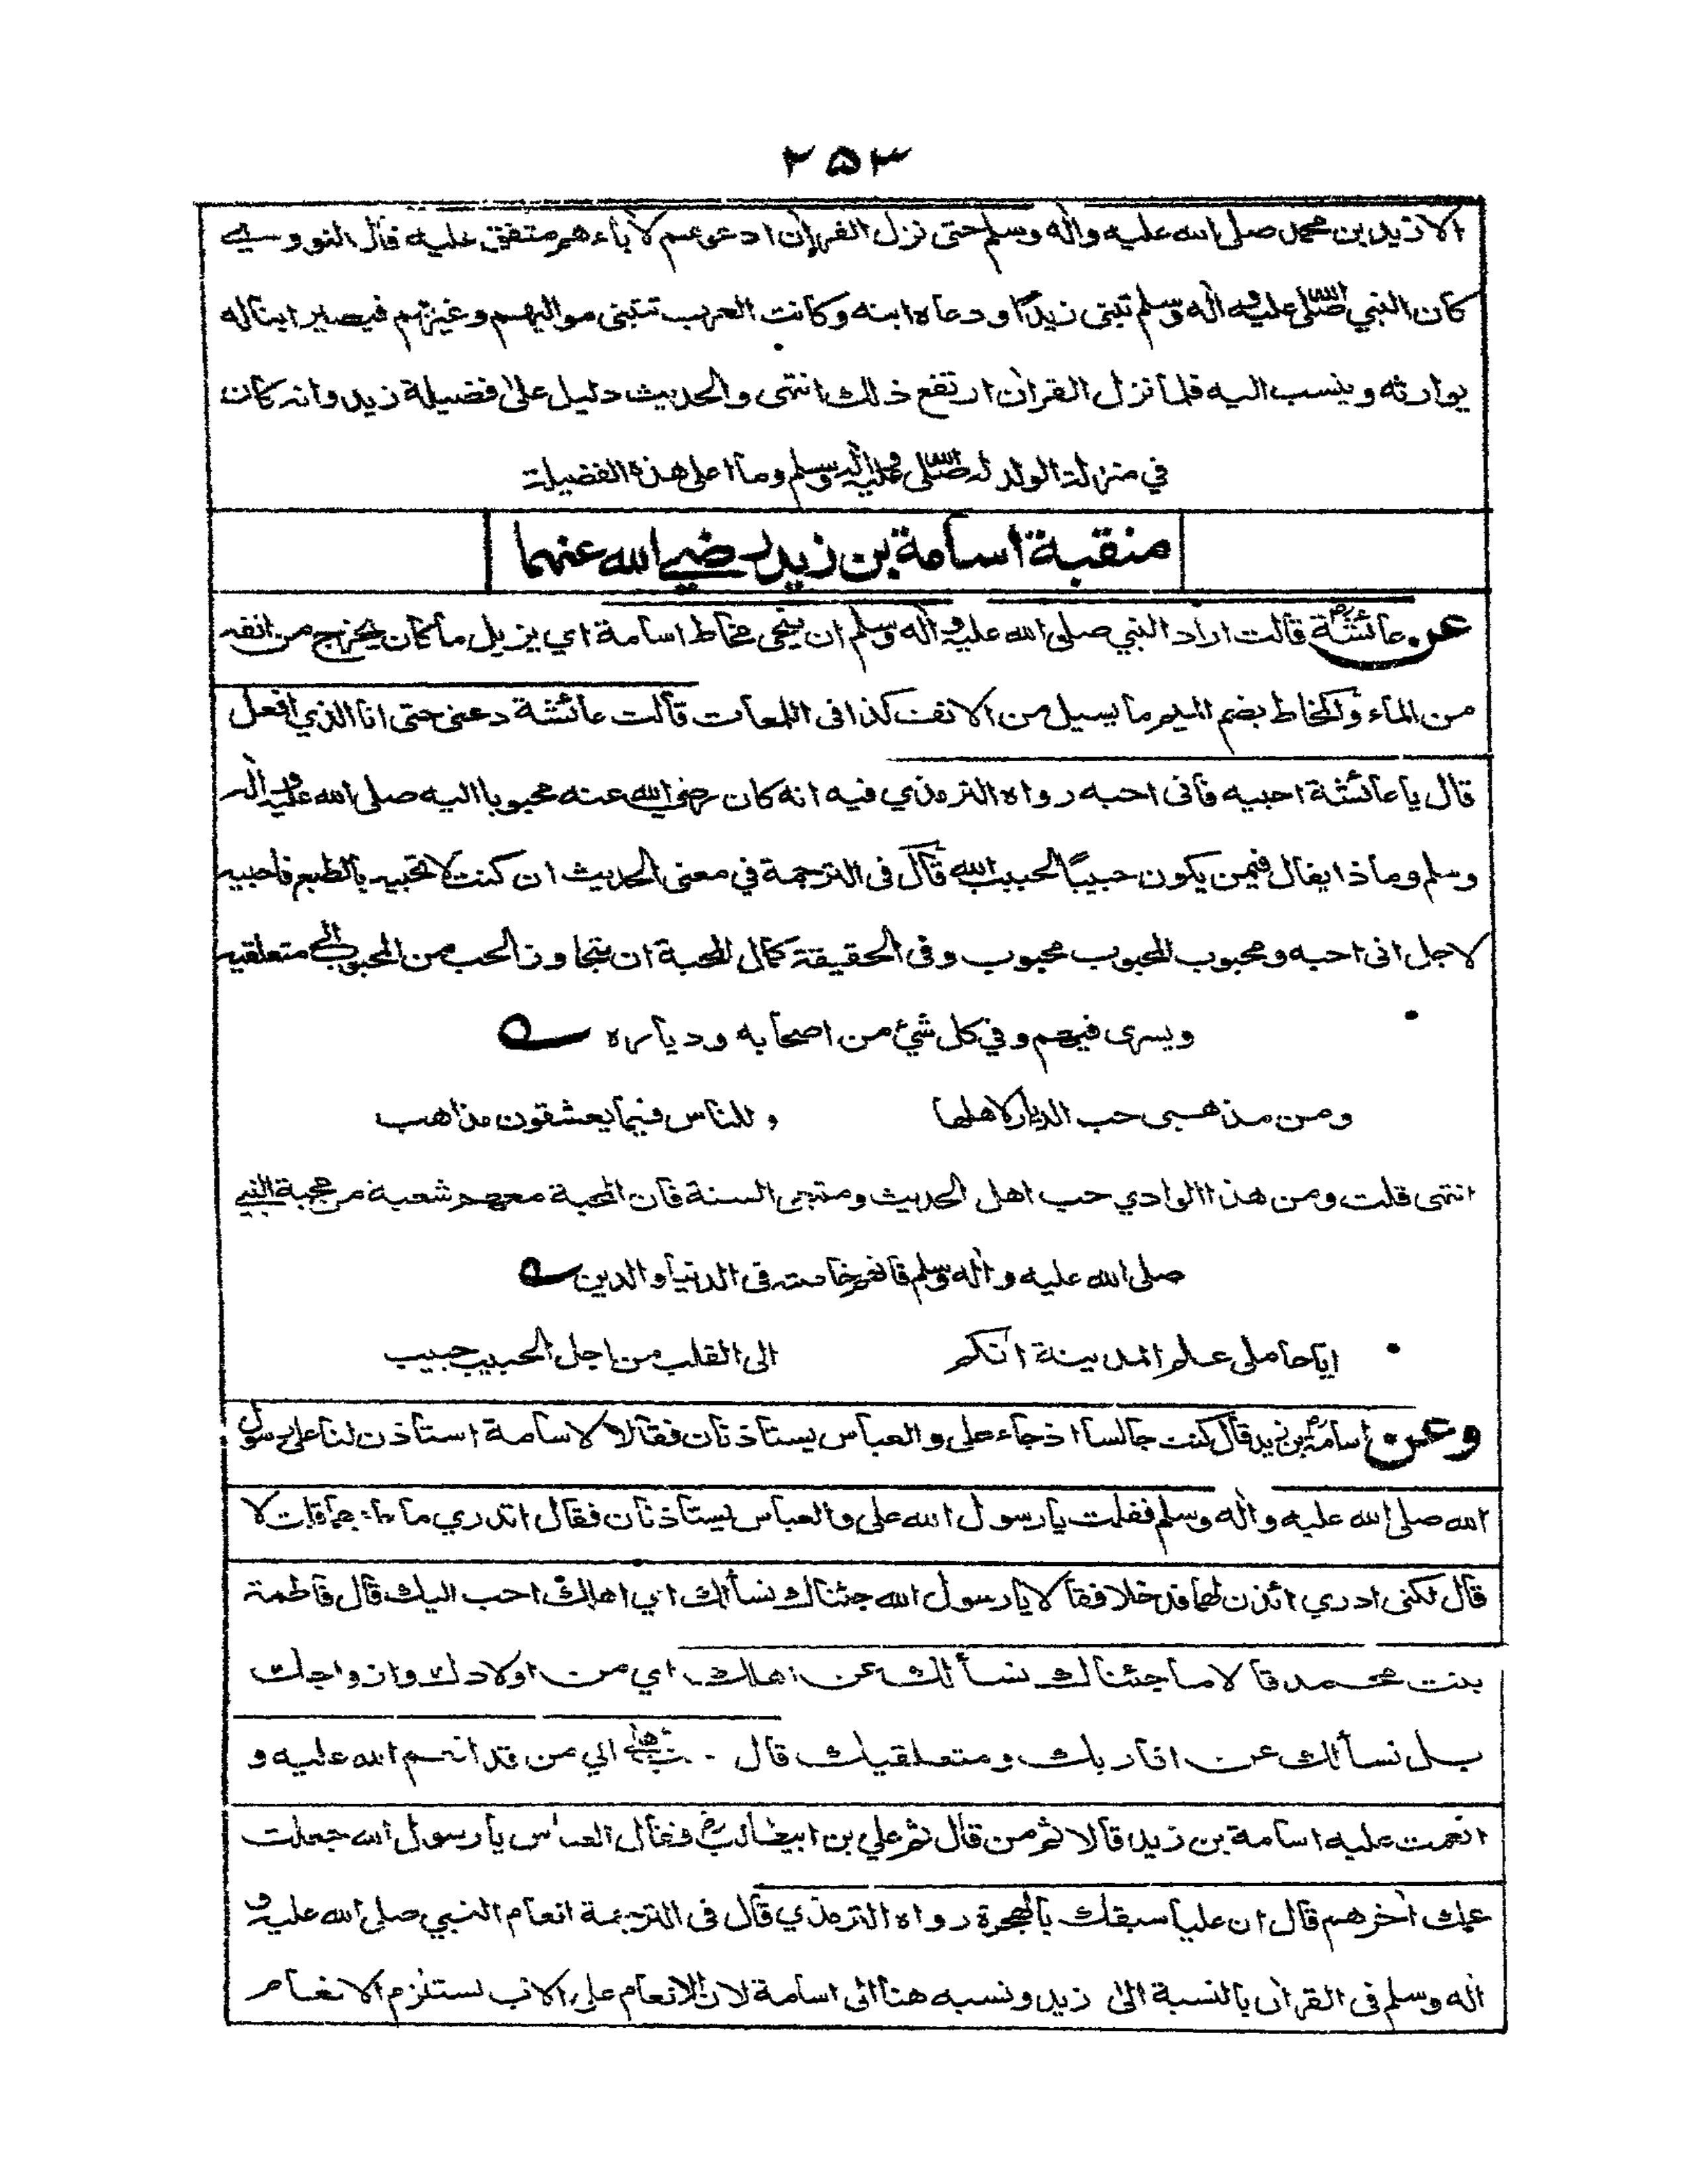 ٢٥٣
الا زيد بن محمد صلى الله عليه واله وسلم حتى نزل القران ادعوهم لاباءهم متفق عليه قال النووي
كان النبي صلى الله عليه واله وسلم تبنى زيدًا ودعاه ابنه وكانت العرب تتبنى مواليهم وغيرهم فيصير ابنا له
يوارثه وينسب اليه فلما نزل القران ارتفع ذلك انتهى والحديث دليل على فضيلة زيد وانه كان
في منزلة الولد له صلى الله عليه واله وسلم وما اعلى هذه الفضيلة
منقبة اسامة بن زيد رضي الله عنهما
عن عائشة رض قالت اراد النبي صلى الله عليه واله وسلم ان ينحي مخاط اسامة اي يزيل ما كان يخرج من انفه
من الماء والمخاط بضم الميم ما يسيل من الانف كذا فى اللمعات قالت عائشة دعنى حتى انا الذي افعل
قال يا عائشة احبيه فانى احبه رواه الترمذي فيه انه كان رضي الله عنه محبوبا اليه صلى الله عليه واله
وسلم وماذا يقال فيمن يكون حبيبًا لحبيب الله قال فى الترجمة في معنى الحديث ان كنت لا تحبيه بالطبع فاحبيه
لاجل انى احبه ومحبوب المحبوب محبوب وفى الحقيقة كمال المحبة ان يتجاوز الحب من المحبوب الى متعلقيه
ويسرى فيهم وفي كل شئ من اصحابه ودياره
ومن مذهبى حب الديار لاهلها وللناس فيما يعشقون مذاهب
انتهى قلت ومن هذا الوادي حب اهل الحديث ومتبعى السنة فان المحبة معهم شعبة من محبة النبي
صلى الله عليه واله وسلم فانهم خاصته فى الدنيا والدين
ايا حاملى علم المدينة انكم الى القلب من اجل الحبيب حبيب
وعن اسامة بن زيد قال كنت جالسا اذ جاء على والعباس يستاذنان فقالا لاسامة استاذن لنا على رسول
الله صلى الله عليه واله وسلم فقلت يا رسول الله على والعباس يستاذنان فقال اتدري ما جاء بهما قلت لا
قال لكنى ادري ائذن لهما فدخلا فقالا يا رسول الله جئناك نسألك اي اهلك احب اليك قال فاطمة
بنت محمد قالا ما جئناك نسألك عن اهلك اي من اولادك وازواجك
بل نسألك عن اقاربك ومتعلقيك قال احب اهلي الي من قد انعم الله عليه و
انعمت عليه اسامة بن زيد قالا ثم من قال ثم علي بن ابيطالب رض فقال العباس يا رسول الله جعلت
عمك اخرهم قال ان عليا سبقك بالهجرة رواه الترمذي قال فى الترجمة انعام النبي صلى الله عليه و
اله وسلم فى القران بالنسبة الى زيد ونسبه هنا الى اسامة لان الانعام على الاب يستلزم الانعام